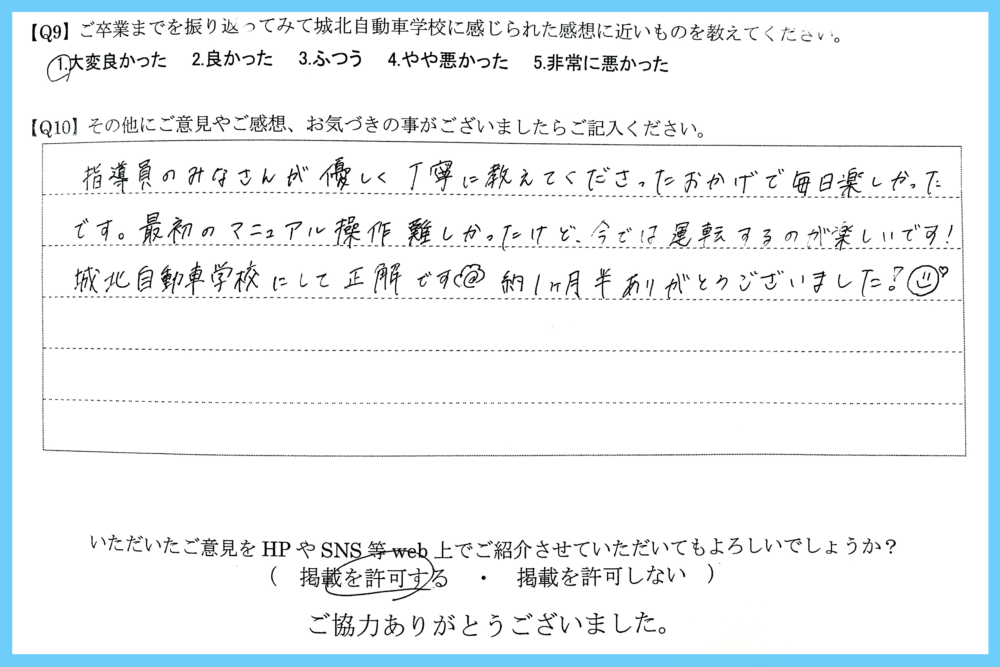 【Q9】ご卒業までを振り返ってみて城北自動車学校に感じられた感想に近いものを教えてください。
1.大変良かった 2.良かった 3.ふつう 4.やや悪かった 5.非常に悪かった
【Q10】その他にご意見やご感想、お気づきの事がございましたらご記入ください。
指導員のみなさんが優しく丁寧に教えてくださったおかげで毎日楽しかった
です。最初のマニュアル操作難しかったけど、今では運転するのが楽しいです!
城北自動車学校にして正解です 約1ヶ月半ありがとうございました!
いただいたご意見をHPやSNS等web上でご紹介させていただいてもよろしいでしょうか?
( 掲載を許可する ・ 掲載を許可しない )
ご協力ありがとうございました。